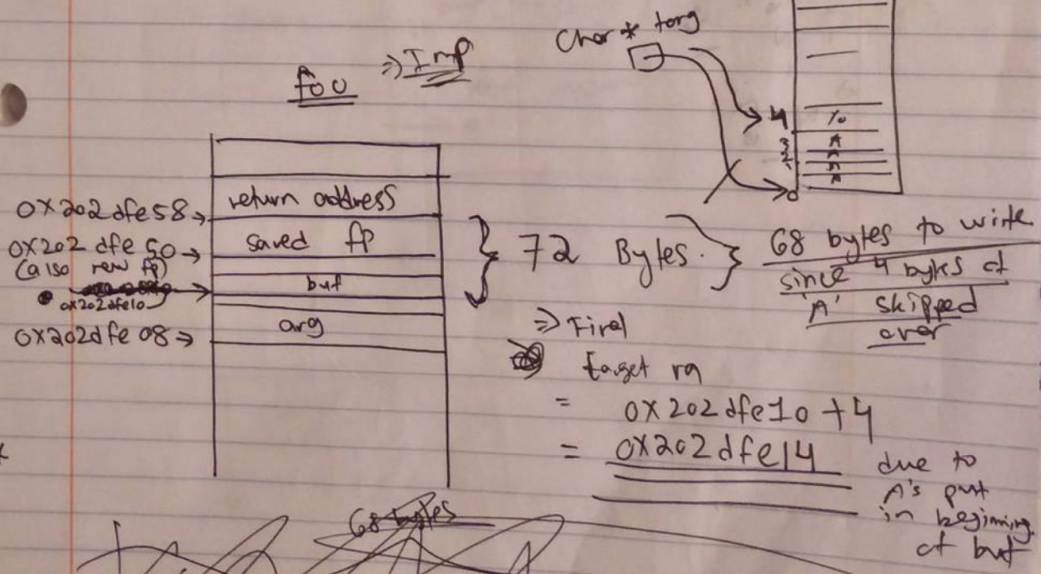 foo => Imp
Char * targ
4 %
3 A
2 A
1 A
0 A
return address
0x202dfe58 →
saved fp
0x202 dfe 50 →
(also new fp)
buf
0x202dfe10
arg
0x202dfe 08 →
72 Bytes.
68 bytes to write
since 4 bytes of
'A' skipped
over
=> Final
target ra
= 0x202dfe10 + 4
= 0x202dfe14
due to
A's put
in beginning
of buf
68 bytes